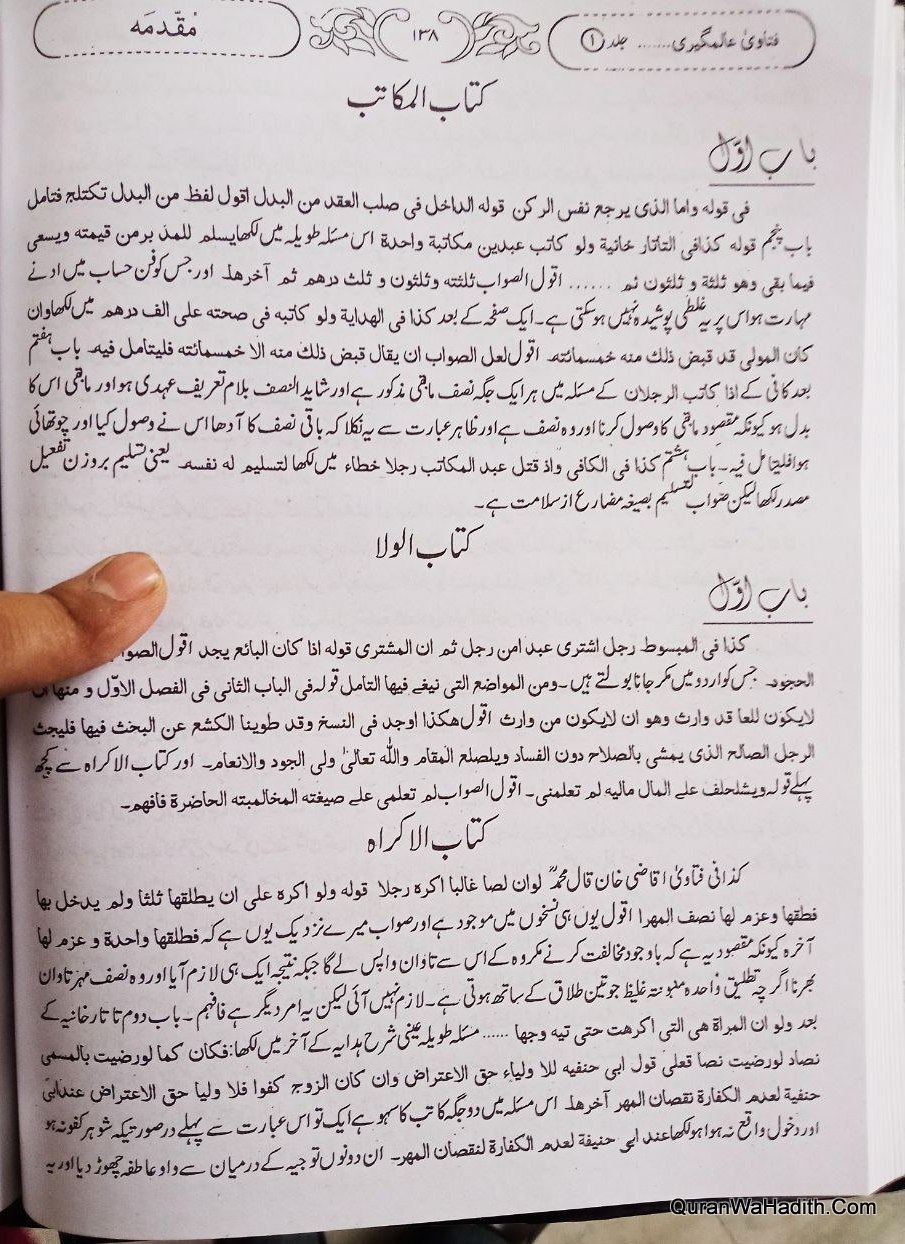 فتاویٰ عالمگیری...... جلد ①
۱۳۸
مُقدّمَہ
کتاب المکاتب
باب اوّل
فی قوله واما الذی یرجع نفس الرکن قوله الداخل فی صلب العقد من البدل اقول لفظ من البدل تکتلج فتامل
باب پنجم قوله کذافی التأتار خانیة ولو کاتب عبدین مکاتبة واحدة اس مسئلہ طویلہ میں لکھا یسلم للمد برمن قیمته ویسعی
فیما بقی وهو ثلثة و ثلثون ثم ...... اقول الصواب ثلثته وثلثون و ثلث درهم ثم آخرهـ اور جس کو فن حساب میں ادنے
مہارت ہو اس پر یہ غلطی پوشیدہ نہیں ہوسکتی ہے۔ ایک صفحہ کے بعد کذا فی الهدایة ولو کاتبه فی صحته علی الف درهم میں لکھا وان
کان المولی قد قبض ذلك منه خمسمائته۔ اقول لعل الصواب ان یقال قبض ذلك منه الا خمسمائته فلیتامل فیه۔ باب ہفتم
بعد کافی کے اذا کاتب الرجلان کے مسئلہ میں ہر ایک جگہ نصف مابقی مذکور ہے اور شاید النصف بلام تعریف عہدی ہو اور مابقی اس کا
بدل ہو کیونکہ مقصود مابقی کا وصول کرنا اور وہ نصف ہے اور ظاہر عبارت سے یہ نکلا کہ باقی نصف کا آدھا اس نے وصول کیا اور چوتھائی
ہوا فلیتامل فیہ۔ باب ہشتم کذا فی الکافی واذ قتل عبد المکاتب رجلا خطاء میں لکھا لتسلیم له نفسه۔ یعنی تسلیم بروزن تفعیل
مصدر لکھا لیکن صواب لتسلیم بصیغہ مضارع از سلامت ہے۔
کتاب الولا
باب اوّل
کذا فی المبسوط رجل اشتری عبد امن رجل ثم ان المشتری قوله اذا کان البائع یجد اقول
الحجود۔ جس کو اردو میں مکر جانا بولتے ہیں۔ ومن المواضع التی نیغے فیها التامل قوله فی الباب الثانی فی الفصل الاوّل و منها
لایکون للعا قد وارث وهو ان لایکون من وارث اقول هکذا اوجد فی النسخ وقد طوینا الکشع عن البحث فیها فلیجث
الرجل الصالح الذی یمشی بالصلاح دون الفساد ویلصلع المقام واللّٰه تعالیٰ ولی الجود والانعام۔ اور کتاب الاکراہ سے کچھ
پہلے قولہ ویشلحلف علے المال مالیه لم تعلمنی۔ اقول الصواب لم تعلمی علے صیغته المخالمبته الحاضرة فافهم۔
کتاب الاکراہ
کذا فی فتاویٰ اقاضی خان قال محمدؒ لوان لصا غالبا اکره رجلا قوله ولو اکرة علی ان یطلقها ثلثا ولم یدخل بها
فطقها وعزم لها نصف المهرا اقول یوں ہی نسخوں میں موجود ہے اور صواب میرے نزدیک یوں ہے کہ فطلقها واحدة و عزم لها
آخرہ کیونکہ مقصود یہ ہے کہ باوجود مخالفت کرنے مکروہ کے اس سے تاوان واپس لے گا جبکہ نتیجہ ایک ہی لازم آیا اور وہ نصف مہر تاوان
بھرنا اگر چہ تطلیق واحدہ غلیظ جو تین طلاق کے ساتھ ہوتی ہے۔ لازم نہیں آئی لیکن یہ امر دیگر ہے فافہم۔ باب دوم تاتارخانیہ کے
بعد ولو ان المراة هی التی اکرهت حتی تیه وجها ...... مسئلہ طویلہ عینی شرح ہدایہ کے آخر میں لکھا: فکان کما لورضیت بالمسمی
نصاد لورضیت نصا قعلی قول ابی حنفیه للا ولیاء حق الاعتراض وان کان الزوج کفوا فلا ولیا حق الاعتراض عندابی
حنفیة لعدم الکفارة نقصان المهر آخرهـ اس مسئلہ میں دو جگہ کاتب کا سہو ہے ایک تو اس عبارت سے پہلے درصورتیکہ شوہر کفو نہ ہو
اور دخول واقع نہ ہوا ہو لکھا عند ابی حنیفة لعدم الکفارة لنقصان المهر۔ ان دونوں توجیہ کے درمیان سے واو عاطفہ چھوڑ دیا اور یہ
QuranWaHadith.Com